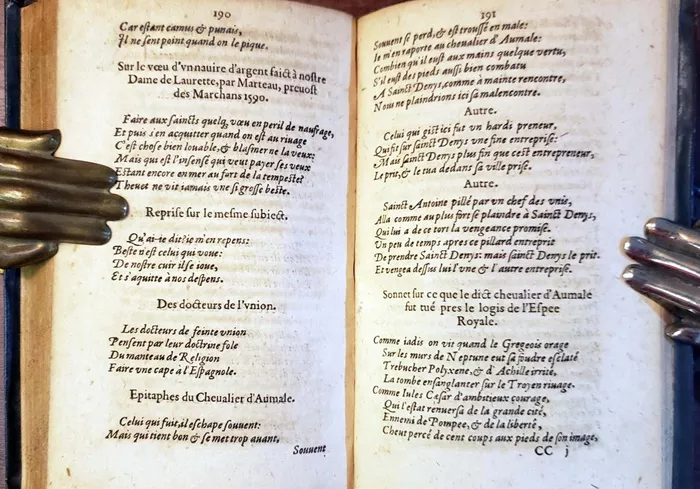 190
Car estant camus & punais,
Il ne sent point quand on le pique.
Sur le vœu d'vn nauire d'argent faict à nostre
Dame de Laurette, par Marteau, preuost
des Marchans 1590.
Faire aux saincts quelq, vœu en peril de naufrage,
Et puis s'en acquitter quand on est au riuage
C'est chose bien louable, & blasmer ne la veux:
Mais qui est l'insensé qui veut payer ses veux
Estant encore en mer au fort de la tempeste?
Theuet ne vit iamais vne si grosse beste.
Reprise sur le mesme subiect.
Qu'ai-ie dit? ie m'en repens:
Beste n'est celui qui voue:
De nostre cuir il se ioue,
Et s'aquitte à nos despens.
Des docteurs de l'vnion.
Les docteurs de feinte vnion
Pensent par leur doctrine fole
Du manteau de Religion
Faire vne cape à l'Espagnole.
Epitaphes du Cheualier d'Aumale.
Celui qui fuie, il eschape souuent:
Mais qui tient bon & se met trop auant,
Souuent
191
Souuent se perd, & est troussé en male:
Ie m'en raporte au cheualier d'Aumale:
Combien qu'il eust aux mains quelque vertu,
S'il eust des pieds aussi bien combatu
A Sainct Denys, comme à mainte rencontre,
Nous ne plaindrions ici sa malencontre.
Autre.
Celui qui gist ici fut vn hardi preneur,
Qui fit sur Sainct Denys vne fine entreprise:
Mais Sainct Denys plus fin que cest entrepreneur,
Le prit, & le tua dedans sa ville prise.
Autre.
Sainct Antoine pillé par vn chef des vnis,
Alla comme au plus fort se plaindre à Sainct Denys,
Qui lui a de ce tort la vengeance promise.
Vn peu de temps apres ce pillard entreprit
De prendre Sainct Denys: mais sainct Denys le prit.
Et vengea dessus lui l'vne & l'autre entreprise.
Sonnet sur ce que le dict cheualier d'Aumale
fut tué pres le logis de l'Espee
Royale.
Comme iadis on vit quand le Gregeois orage
Sur les murs de Neptune eut sa foudre esclaté
Trebucher Polyxene, & d'Achille irrité,
La tombe ensanglanter sur le Troyen riuage.
Comme Iules Cæsar d'ambitieux courage,
Qui l'estat renuersa de la grande cité,
Ennemi de Pompee, & de la liberté,
Cheut percé de cent coups aux pieds de son image,
CC j